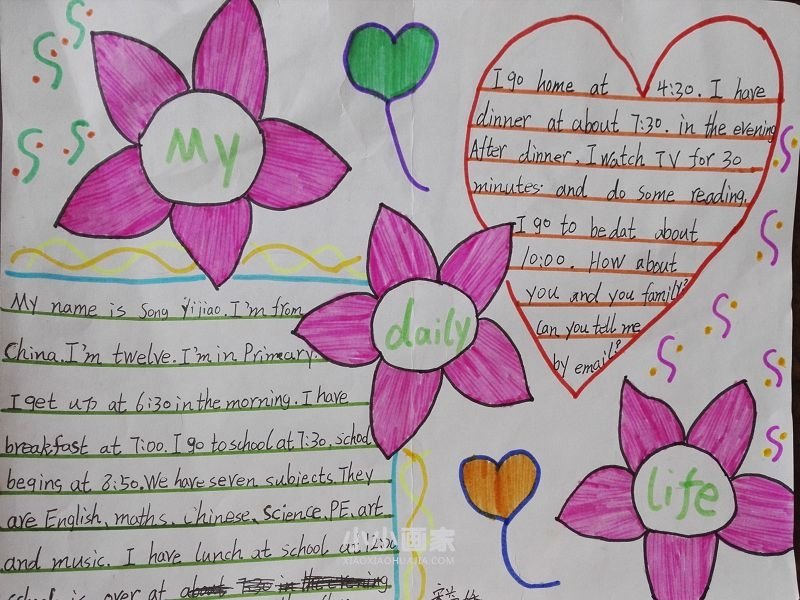 My
daily
life
My name is Song Yijiao. I'm from
China. I'm twelve. I'm in Primary.
I get up at 6:30 in the morning. I have
breakfast at 7:00. I go to school at 7:30. school
begins at 8:50. We have seven subjects. They
are English, maths, Chinese, Science, PE, art
and music. I have lunch at school
is over at
I go home at 4:30. I have
dinner at about 7:30. in the evening
After dinner, I watch TV for 30
minutes. and do some reading.
I go to bedat about
10:00. How about
you and you family?
Can you tell me
by email?
小小画家
XIAOXIAOHUAJIA.COM